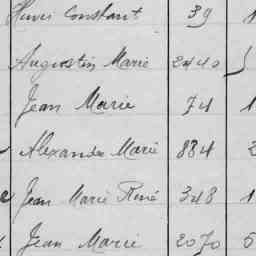 Constant 39 1
Augustin Marie 2440
Jean Marie 74 1
Alexandre Marie 884 2
Jean Marie René 348 1
Jean Marie 2070 5